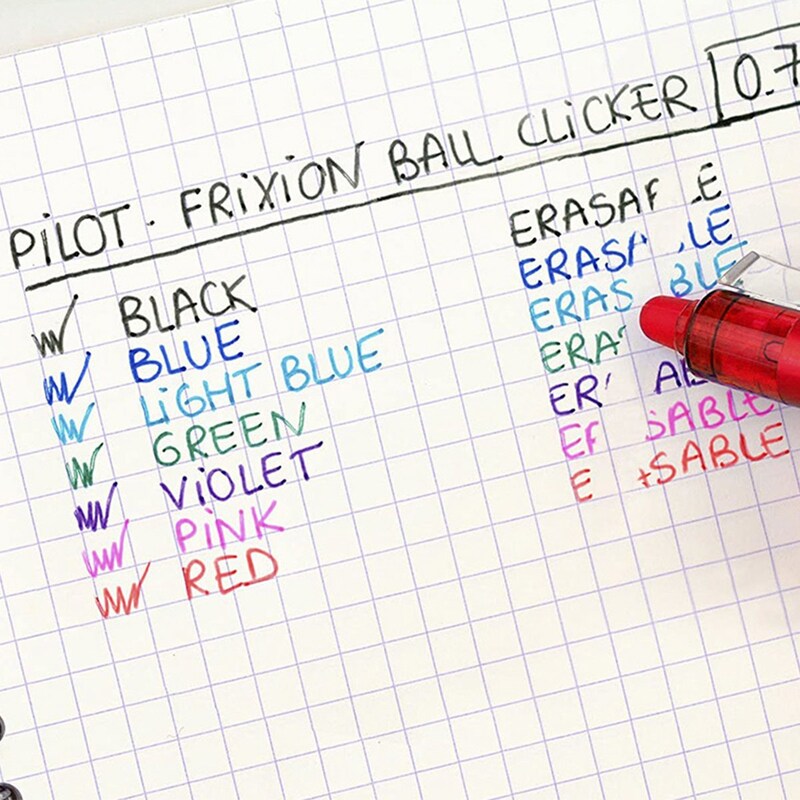 PiLOT. FRiXiON BALL CLiCKER 0.7
BLACK
BLUE
LiGHT BLUE
GREEN
ViOLET
PiNK
RED
ERASA E
ERAS LE
ERAS BLE
ERA
ER AB
E SABLE
E SABLE